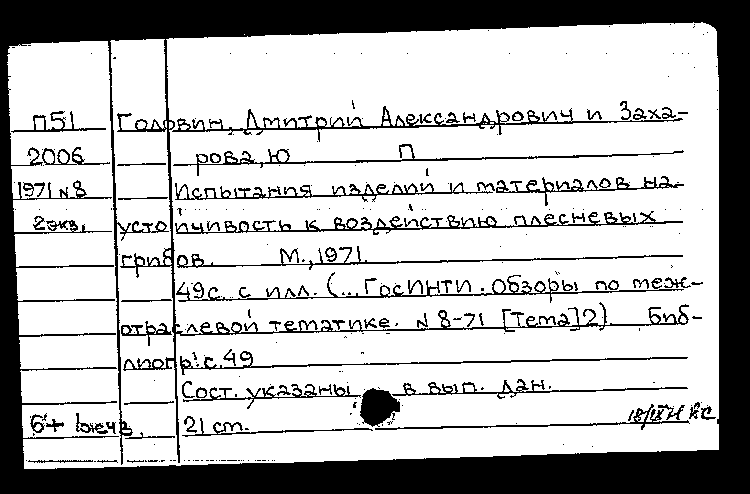 П51 Головин, Дмитрий Александрович и Заха-
2006 рова, Ю П
1971 N 8 Испытания изделий и материалов на
2экз, устойчивость к воздействию плесневых
грибов. М., 1971.
49с. с илл. (...ГосИНТИ. Обзоры по меж-
отраслевой тематике. N 8-71 [Тема]2). Биб-
лиогр: с.49
Сост. указаны в вып. дан.
21 cm. 18/IX 71